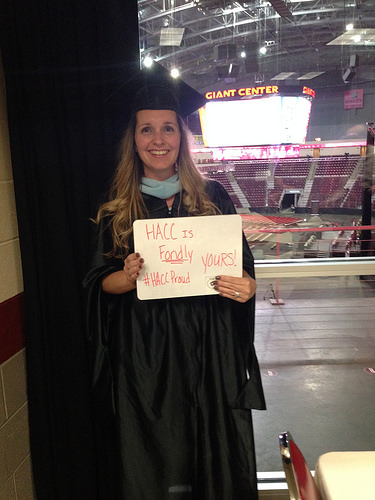 GIANT CENTER
HACC IS
Fondly
YOURS!
#HACCProud